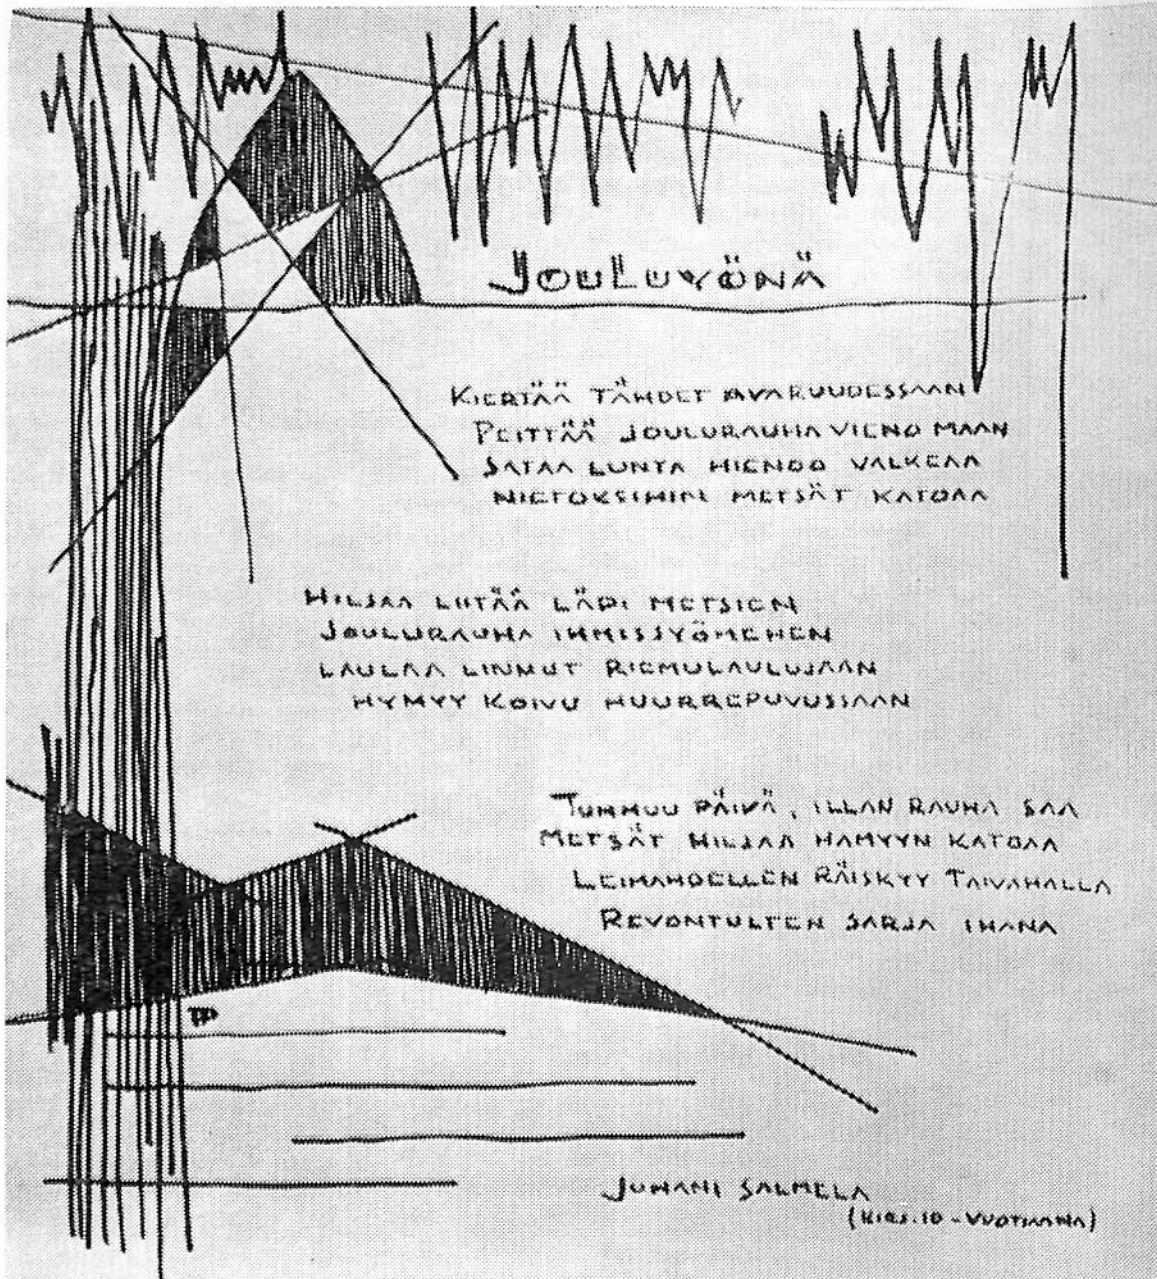 JOULUYÖNÄ
KIERTÄÄ TÄHDET AVARUUDESSAAN
PEITTÄÄ JOULURAUHA VIENO MAAN
SATAA LUNTA HIENOO VALKEAA
NIETOKSIHIN METSÄT KATOAA
HILJAA LIITÄÄ LÄPI METSIEN
JOULURAUHA IHMISSYÖMEHEN
LAULAA LINNUT RIEMULAULUJAAN
HYMYY KOIVU HUURREPUVUSSAAN
TUMMUU PÄIVÄ, ILLAN RAUHA SAA
METSÄT HILJAA HÄMYYN KATOAA
LEIMAHDELLEN RÄISKYY TAIVAHALLA
REVONTULTEN SARJA IHANA
JUHANI SALMELA
(KIRJ. 10-VUOTIAANA)